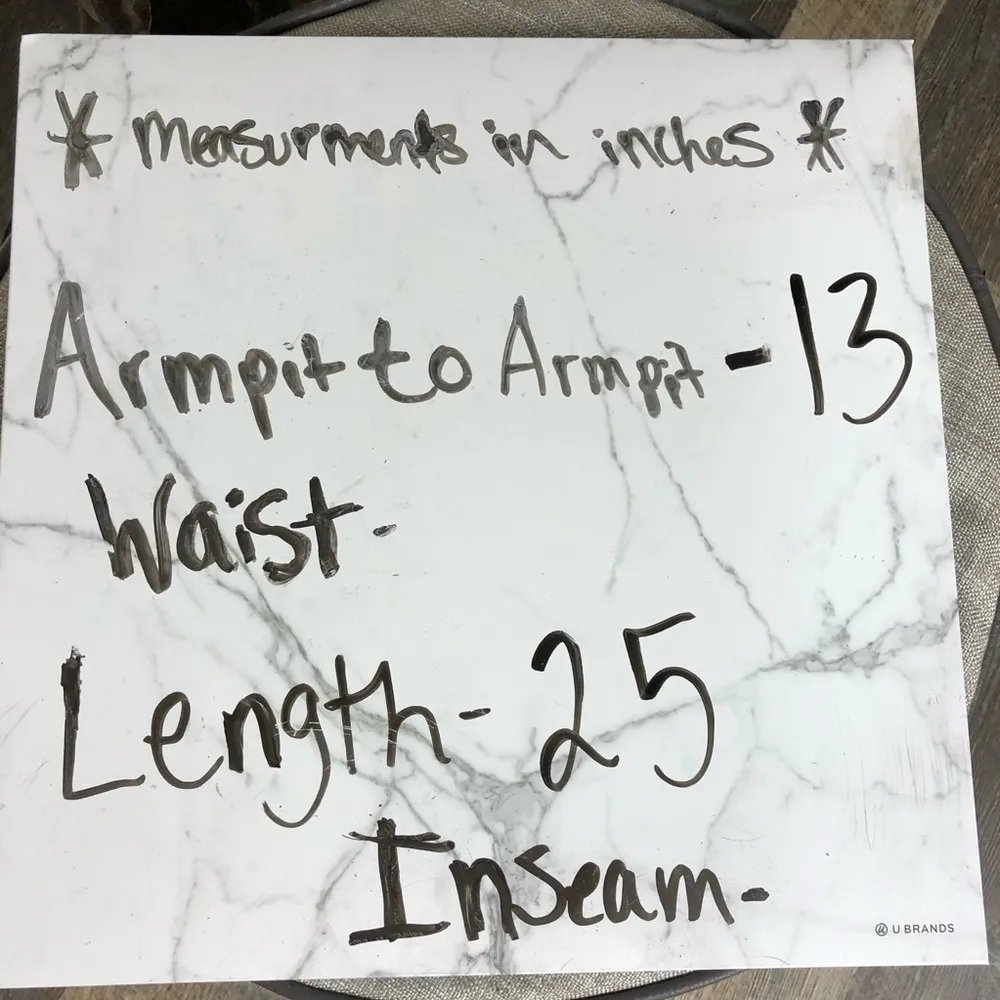 * measurments in inches *
Armpit to Armpit - 13
Waist -
Length - 25
Inseam -
U BRANDS